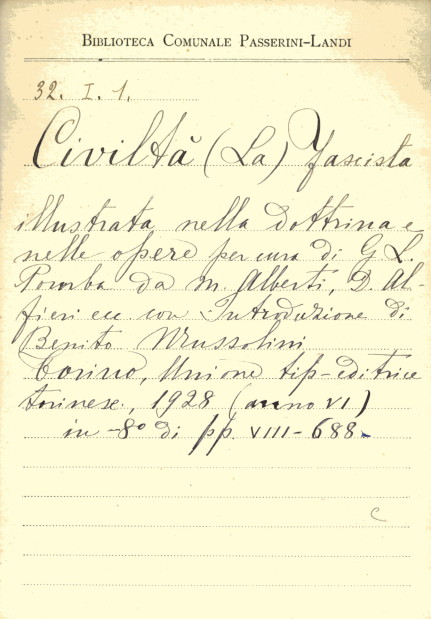 BIBLIOTECA COMUNALE PASSERINI-LANDI
32. I. 1.
Civiltà (La) fascista
illustrata nella dottrina e
nelle opere per cura di G L.
Pomba da M. Alberti, D. Al-
fieri ecc con Introduzione di
Benito Mussolini
Torino, Unione tip-editrice
torinese, 1928 (anno VI)
in -8° di pp. VIII-688.
C